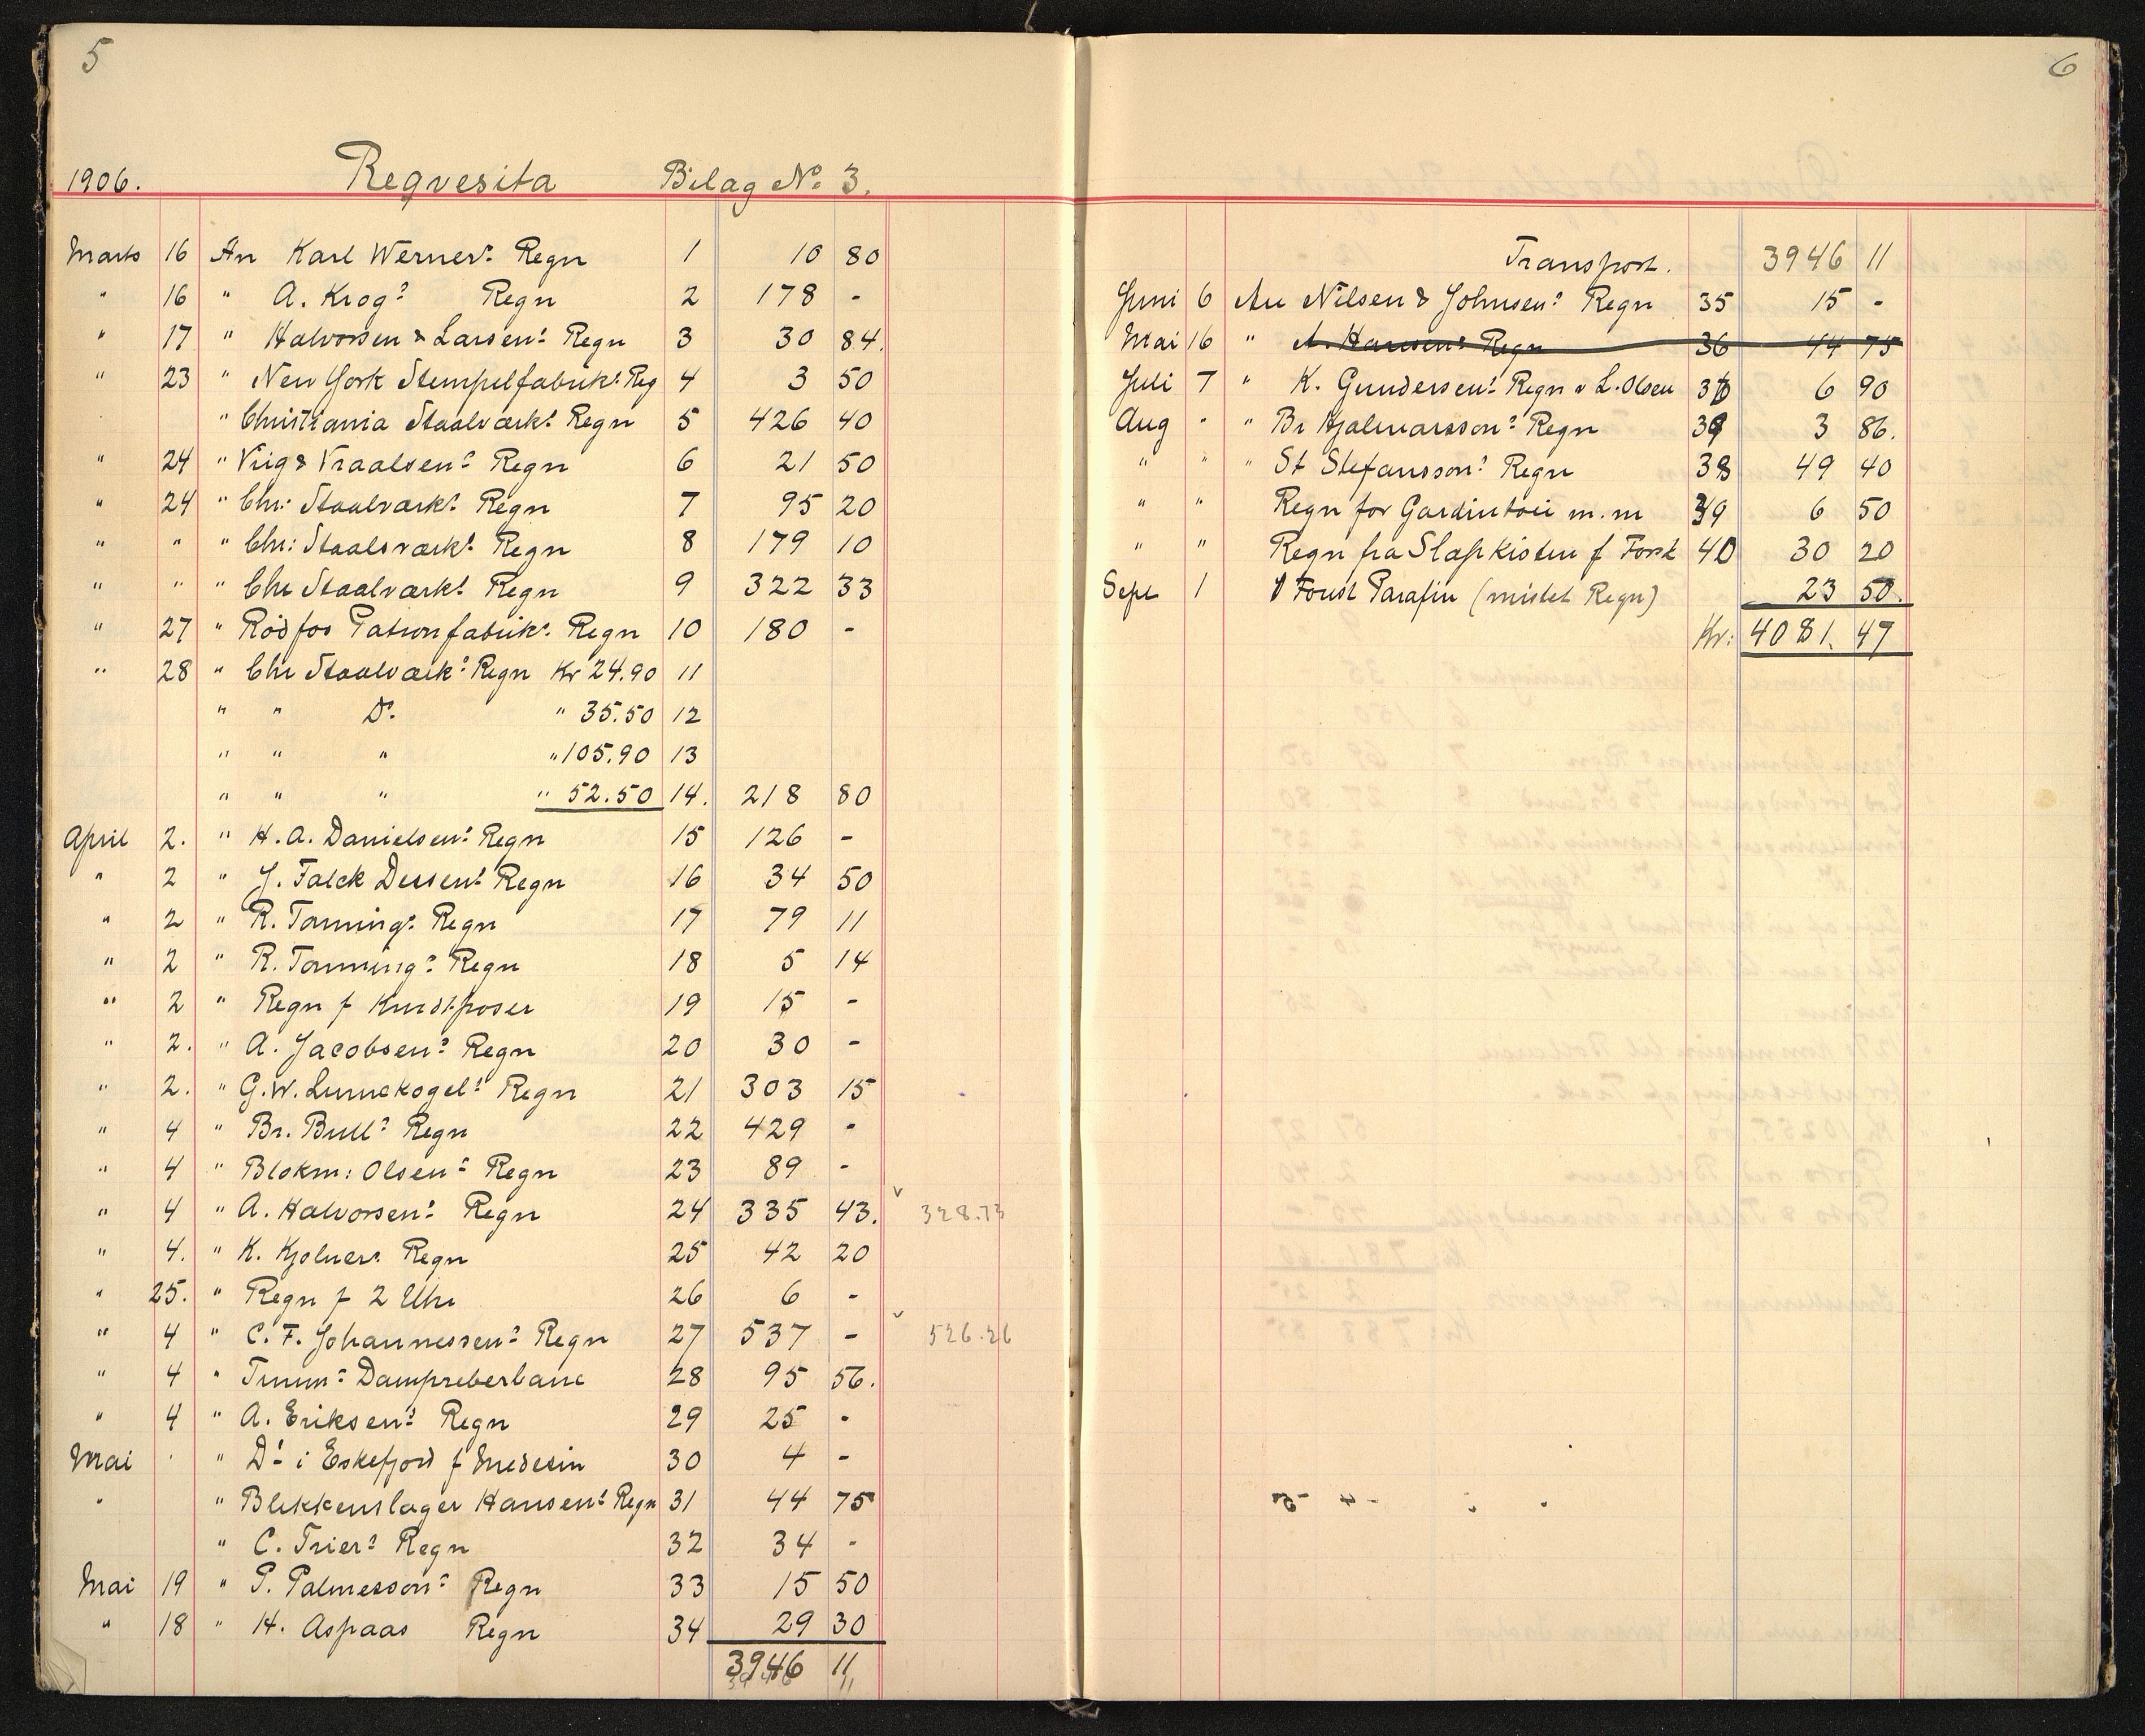 5
1906. Reqvesita Bilag No 3.
Marts 16 An Karl Werners Regn 1 10 80
" 16 " A. Krogs Regn 2 178 -
" 17 " Halvorsen & Larsens Regn 3 30 84.
" 23 " New York Stempelfabriks Reg 4 3 50
" Christiania Staalværks Regn 5 426 40
" 24 " Vrig & Vraalsens Regn 6 21 50
" 24 " Chr: Staalværks Regn 7 95 20
" " " Chr: Staalsværks Regn 8 179 10
" " " Chr Staalværks Regn 9 322 33
" 27 " Rödfos Patronfabriks Regn 10 180 -
" 28 " Chr Staalværks Regn Kr 24.90 11
" " Do. " 35.50 12
" " " " 105.90 13
" " " " 52.50 14. 218 80
April 2. " H. A. Danielsens Regn 15 126 -
" 2 " J. Falck Dessens Regn 16 34 50
" 2 " R. Tonnings Regn 17 79 11
" 2 " R. Tonnings Regn 18 5 14
" 2 " Regn f 19 15 -
" 2. " A. Jacobsens Regn 20 30 -
" 2. " G. W. Linnekogels Regn 21 303 15
" 4 " Br. Bulls Regn 22 429 -
" 4 " Blokm: Olsens Regn 23 89 -
" 4 " A. Halvorsens Regn 24 335 43. v 328.73
" 4. " K. Kjolners Regn 25 42 20
" 25. " Regn f 2 Uhr 26 6 -
" 4 " C. F. Johannessens Regn 27 537 - v 526.26
" 4 " Timms Dampreberbane 28 95 56.
" 4 " A. Eriksens Regn 29 25 -
Mai " " Dr i Eskefjord f Medesin 30 4 -
" " Blekkenslager Hansens Regn 31 44 75
" C. Triers Regn 32 34 -
Mai 19 " P. Palmessons Regn 33 15 50
" 18 " H. Aspaas Regn 34 29 30
3946 11
3946 11
6
Transport. 3946 11
Juni 6 An Nilsen & Johnsens Regn 35 15 -
Mai 16 " A. Hansens Regn 36 44 75
Juli 7 " K. Gundersens Regn v L. Olsen 36 6 90
Aug " " Br Hjalmarssons Regn 39 3 86.
" " " St Stefanssons Regn 38 49 40
" " Regn for Gardintøi m.m 39 6 50
" " Regn fra Slapkisten f Forsk 40 30 20
Sept 1 1 Foust Parafin (mistet Regn) 23 50.
Kr: 4081. 47